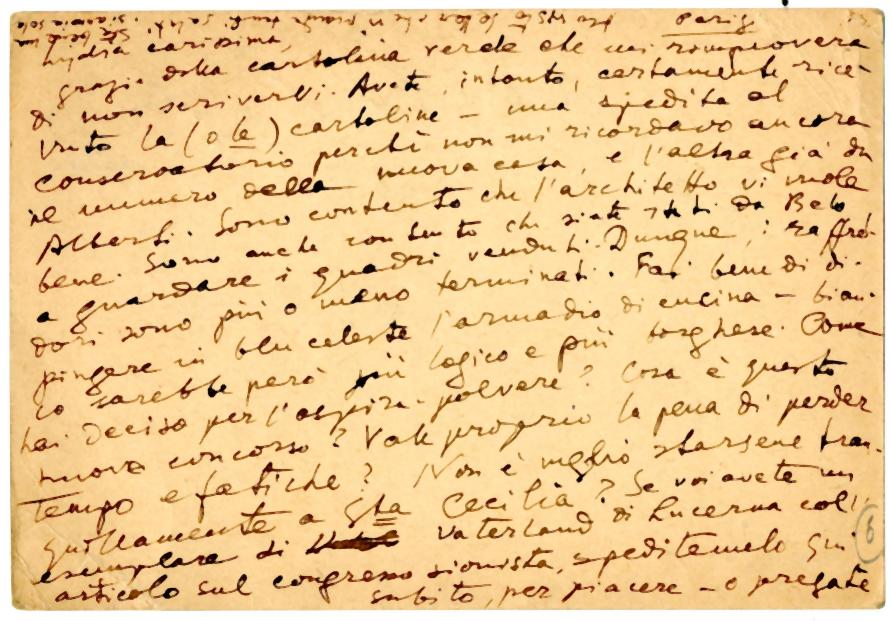 Parigi
Lydia carissima,
grazie della cartolina verde che mi rimprovera
di non scrivervi. Avete, intanto, certamente rice-
vuto la (o le) cartoline – una spedita al
Conservatorio perchè non mi ricordavo ancora
il numero della nuova casa, e l'altra già da
Alberti. Sono contento che l'architetto vi vuole
bene. Sono anche contento che siate stati da Belo
a guardare i quadri venduti. Dunque, i raffred-
dori sono più o meno terminati. Fai bene di di-
pingere in blu celeste l'armadio di cucina – bian-
co sarebbe però più logico e più borghese. Come
hai deciso per l'aspira-polvere? Cosa è questo
nuovo concorso? Vale proprio la pena di perder
tempo e fatiche? Non è meglio starsene tran-
quillamente a Sta Cecilia? Se voi avete un
esemplare di Vaterland di Lucerna coll'
articolo sul congresso sionista, speditemelo qui
subito, per piacere – o pregate
6